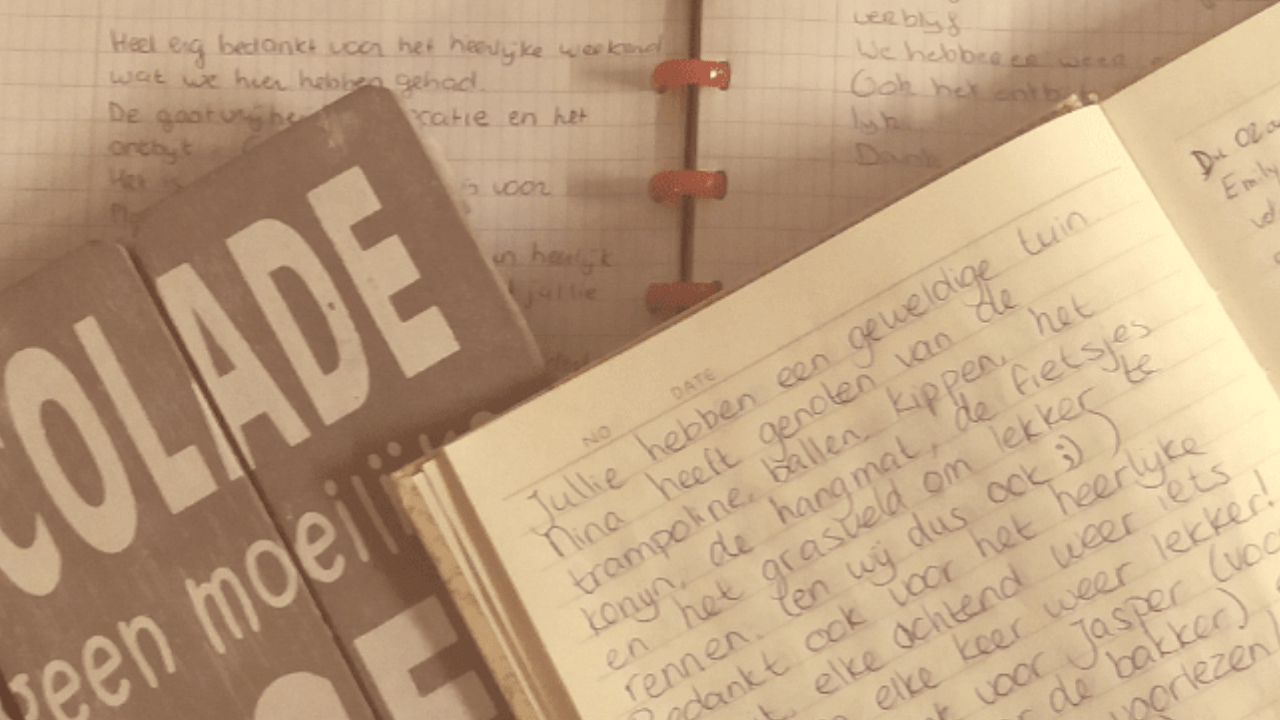 Heel erg bedankt voor het heerlijke weekend
wat we hier hebben gehad.
De gastvrijhe
catie en het
ontbijt
voor
en heerlijk
jullie
verblijf
We hebben er weer
Ook het ontb
lijk
Dank
COLADE
geen moeilijke
NO DATE
Jullie hebben een geweldige tuin.
Nina heeft genoten van de
trampoline, ballen, kippen, het
konijn, de hangmat, de fietsjes
en het grasveld om lekker te
rennen. (en wij dus ook ;) )
Bedankt ook voor het heerlijke
elke ochtend weer iets
elke keer weer lekker!
voor Jasper (voo
de bakker)
voorlezen!
Emily